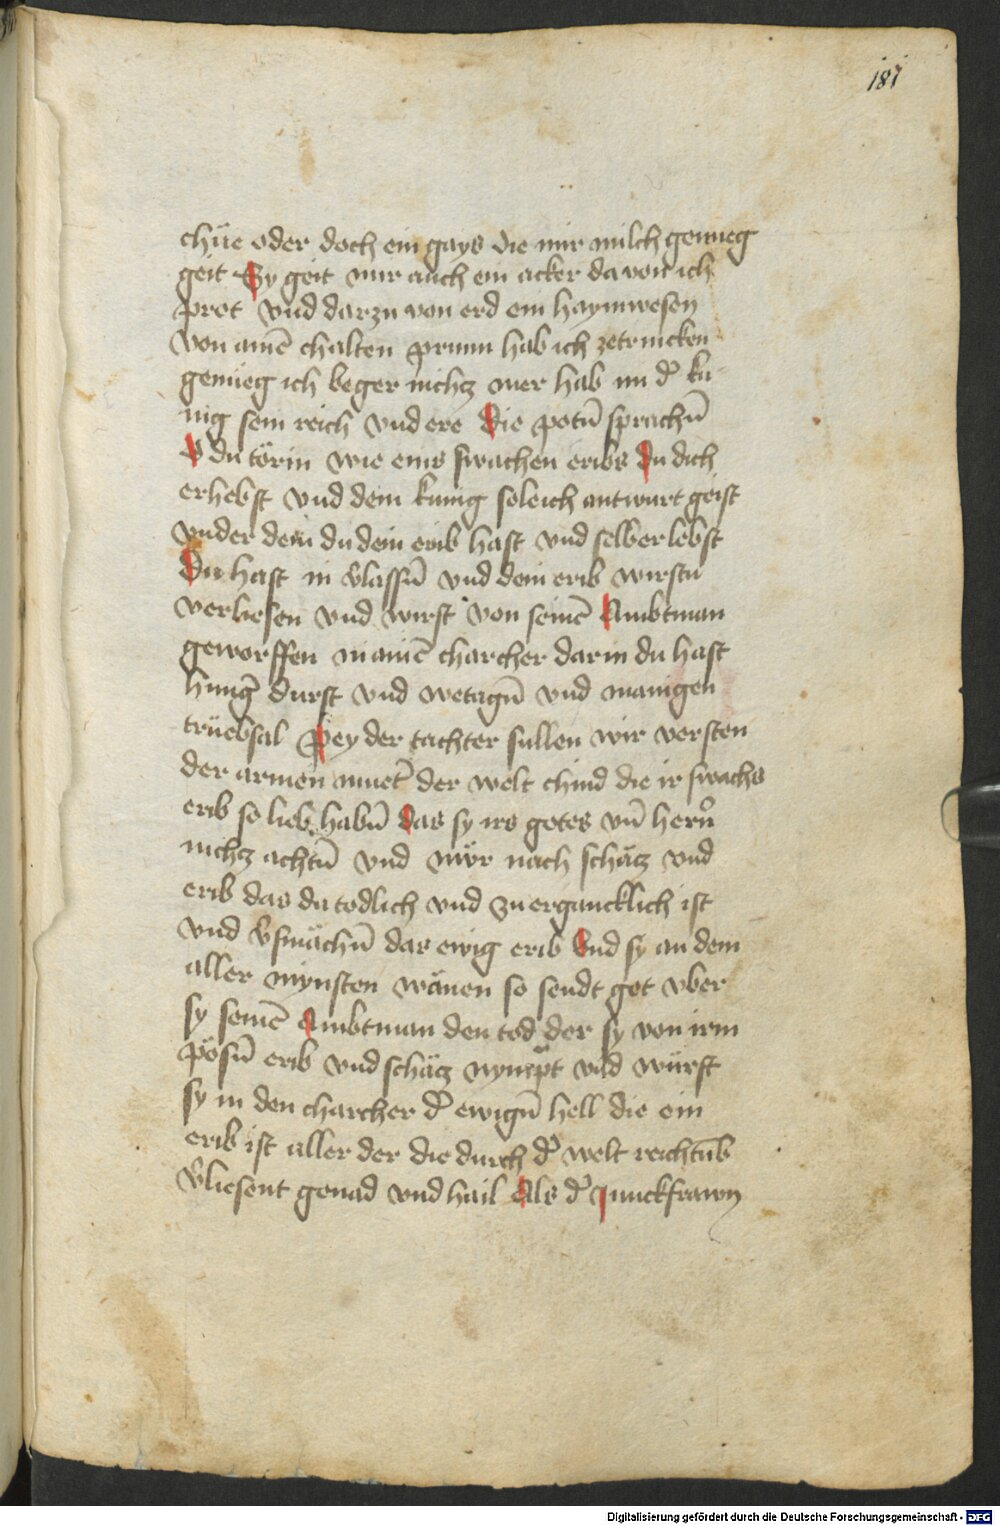 187
chüe oder doch ein gays die mir milch genueg
geit Sy geit mir auch ein acker da von ich
prot vnd darzu von erd ein haymwesen
von ainē chalten prunn hab ich zetrincken
genueg ich beger nichtz mer hab im d' ku
nig sein reich vnd ere Die potn̄ sprachn̄
O du törin wie eins swachen eribs du dich
erhebst vnd dem kunig soleich antwurt geist
vnder dem du dein erib hast vnd selber lebst
Du hast in v'lassn̄ vnd dein erib wirstu
verliesen vnd wirst von seinē Ambtman
geworffen in ainē charcher darin du hast
hung' durst vnd wetagn̄ vnd manigen
trüebsal Pey der tachter sullen wir versten
der armen muet' der welt chind die ir swachs
erib so lieb habn̄ das sy irs gotes vn̄ hern
nichtz achtn̄ vnd mör nach schätz vnd
erib das da todlich vnd zuergancklich ist
vnd v'smächn̄ das ewig erib Vnd sy an dem
aller mynsten wänen so sendt got vber
sy seinē Ambtman den tod der sy von irm
pösn̄ erib vnd schätz nympt vnd würft
sy in den charcher d' ewign̄ hell die ein
erib ist aller der die durch d' welt reichtūb
v'liesent genad vnd hail Als d' Junckfrawn
Digitalisierung gefördert durch die Deutsche Forschungsgemeinschaft - DFG